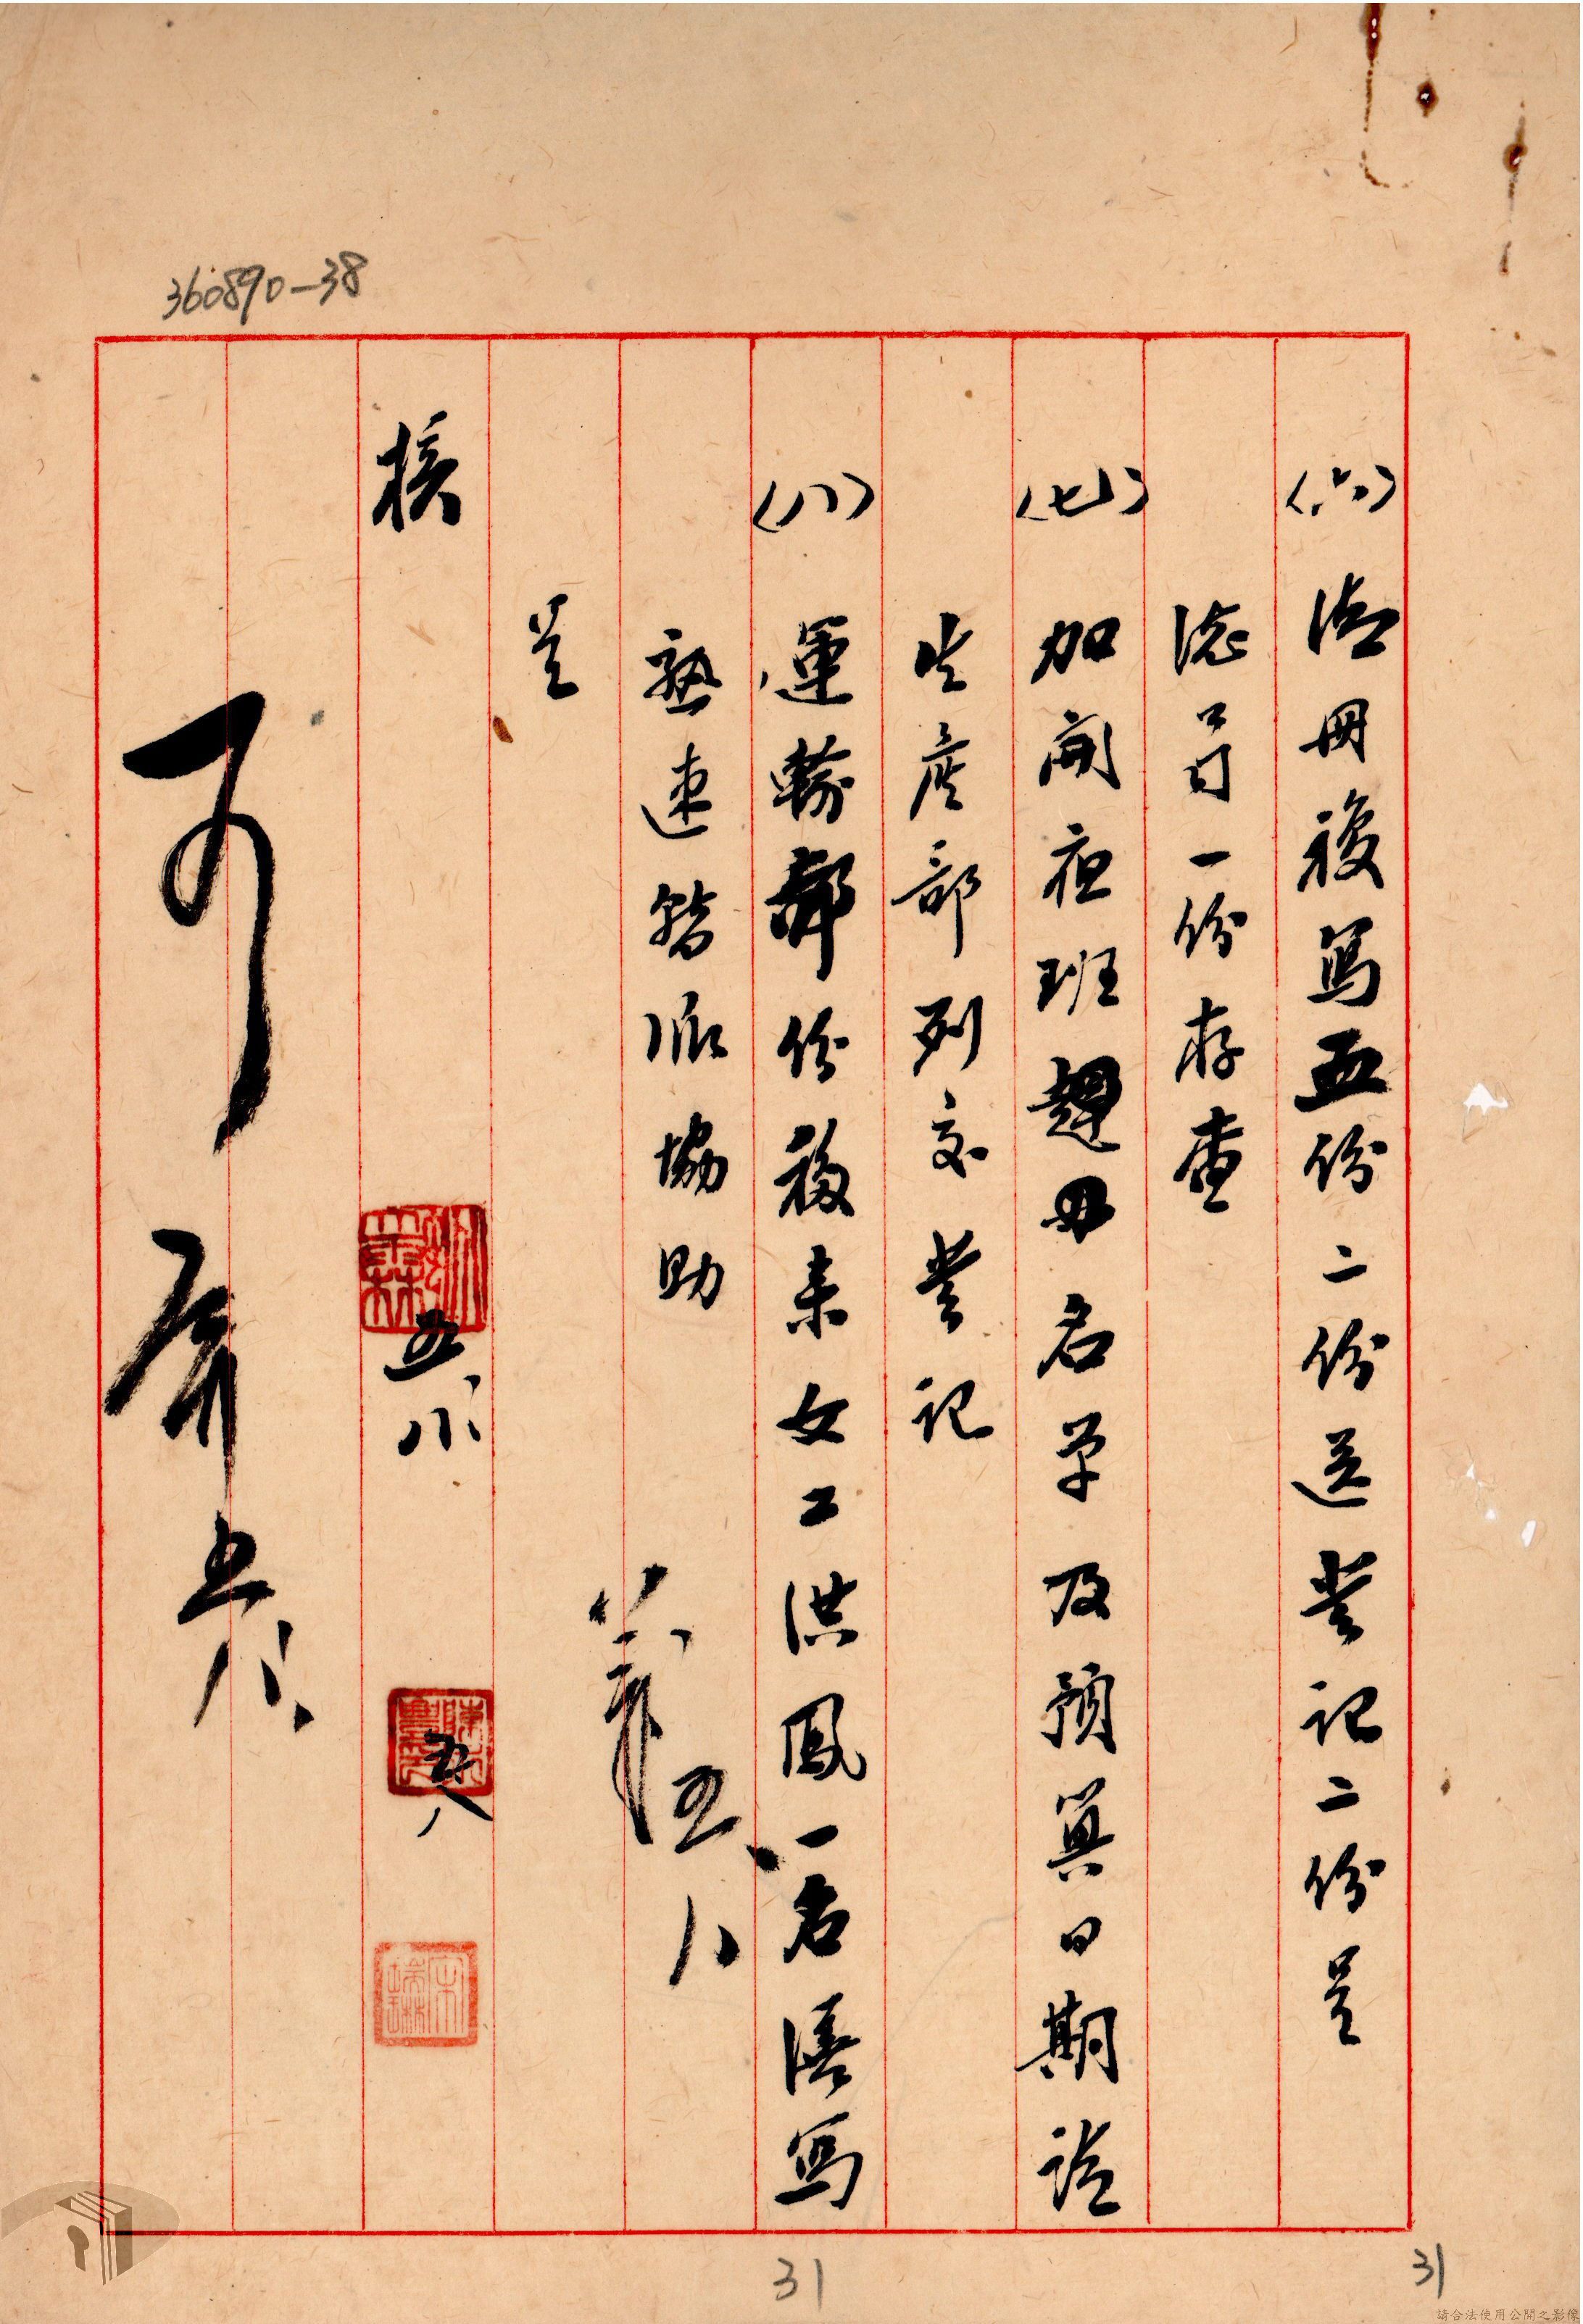 360890-38
(六) 清冊複寫五份二份送登記二份呈
總司一份存查
(七) 加開夜班趕毋名單及預算日期請
生產部列交登記
(八) 運輸部份移來女工洪鳳一名繕寫
熟速請派協助
呈
核
五八
五八
五八
可
五八
31
31
請合法使用公開之影像